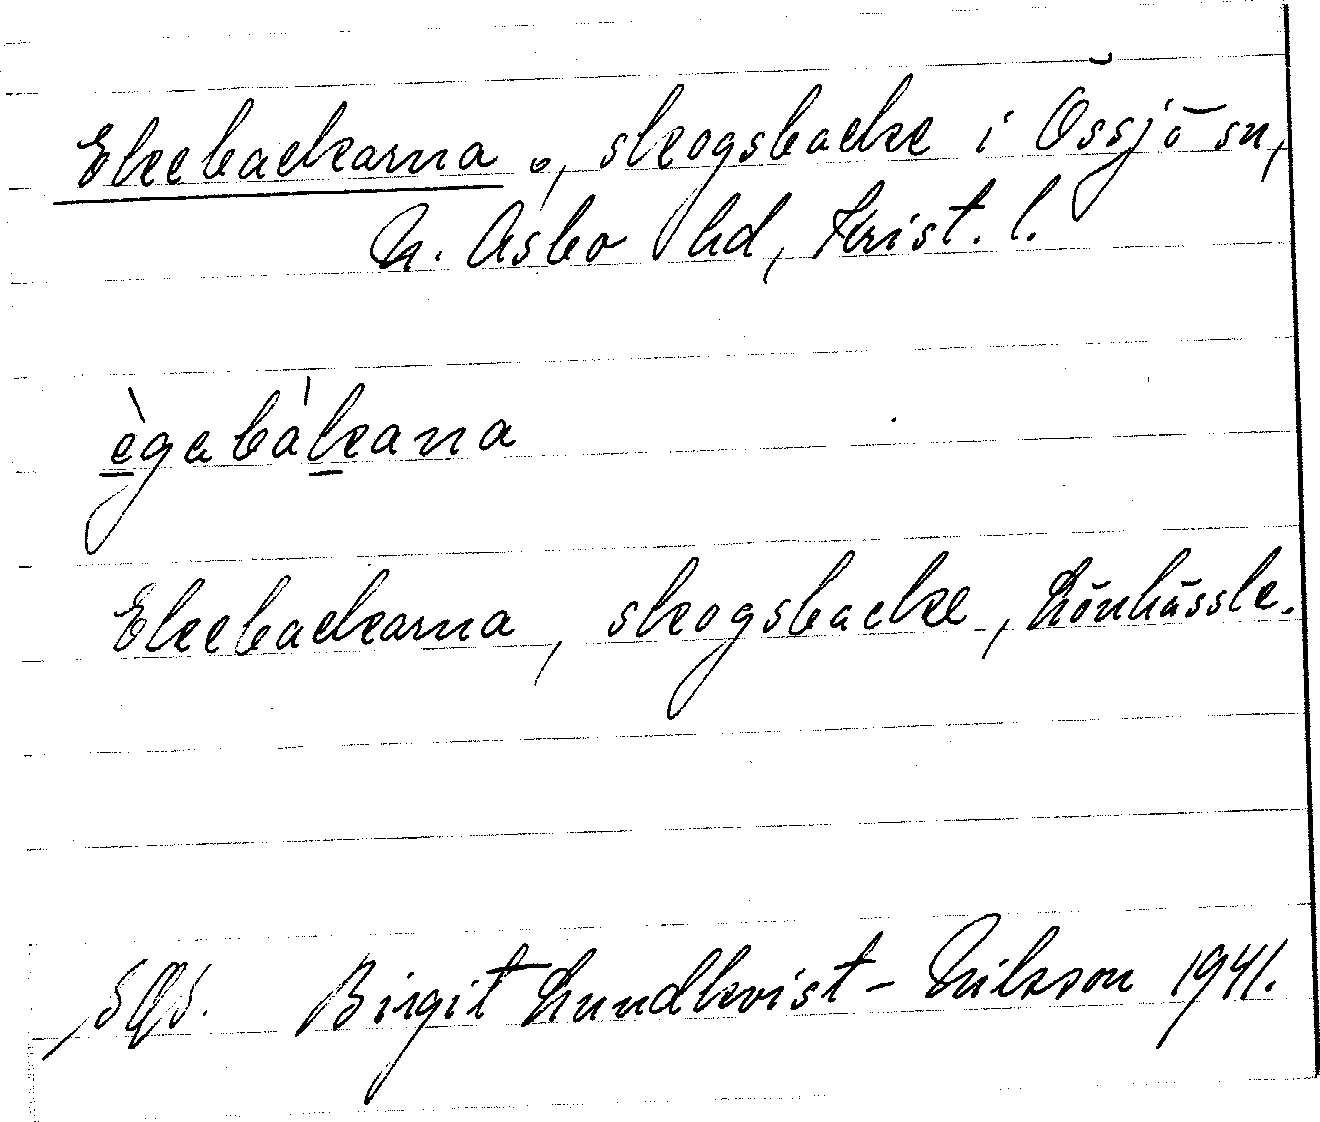 Ekebackarna o., skogsbacke i Össjö sn,
N. Åsbo hd, Krist. l.
ègabàkana
Ekebackarna, skogsbacke, Lönhässle.
SOS. Birgit Lundkvist-Nilsson 1941.